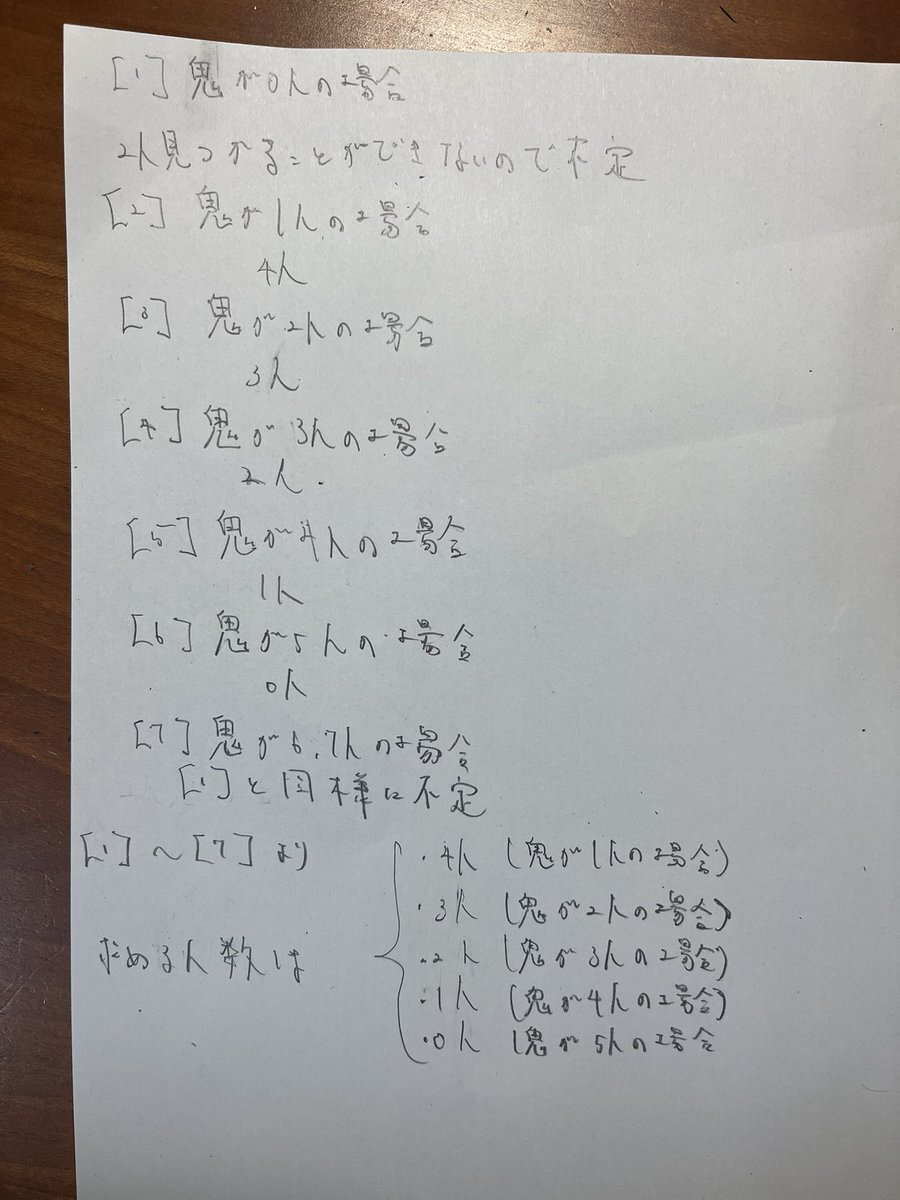 [1] 鬼が0人の場合
2人見つかることができないので不定
[2] 鬼が1人の場合
4人
[3] 鬼が2人の場合
3人
[4] 鬼が3人の場合
2人.
[5] 鬼が4人の場合
1人
[6] 鬼が5人の場合
0人
[7] 鬼が6.7人の場合
[1]と同様に不定
[1]~[7]より
求める人数は
・4人 (鬼が1人の場合)
・3人 (鬼が2人の場合)
・2人 (鬼が3人の場合)
・1人 (鬼が4人の場合)
・0人 (鬼が5人の場合